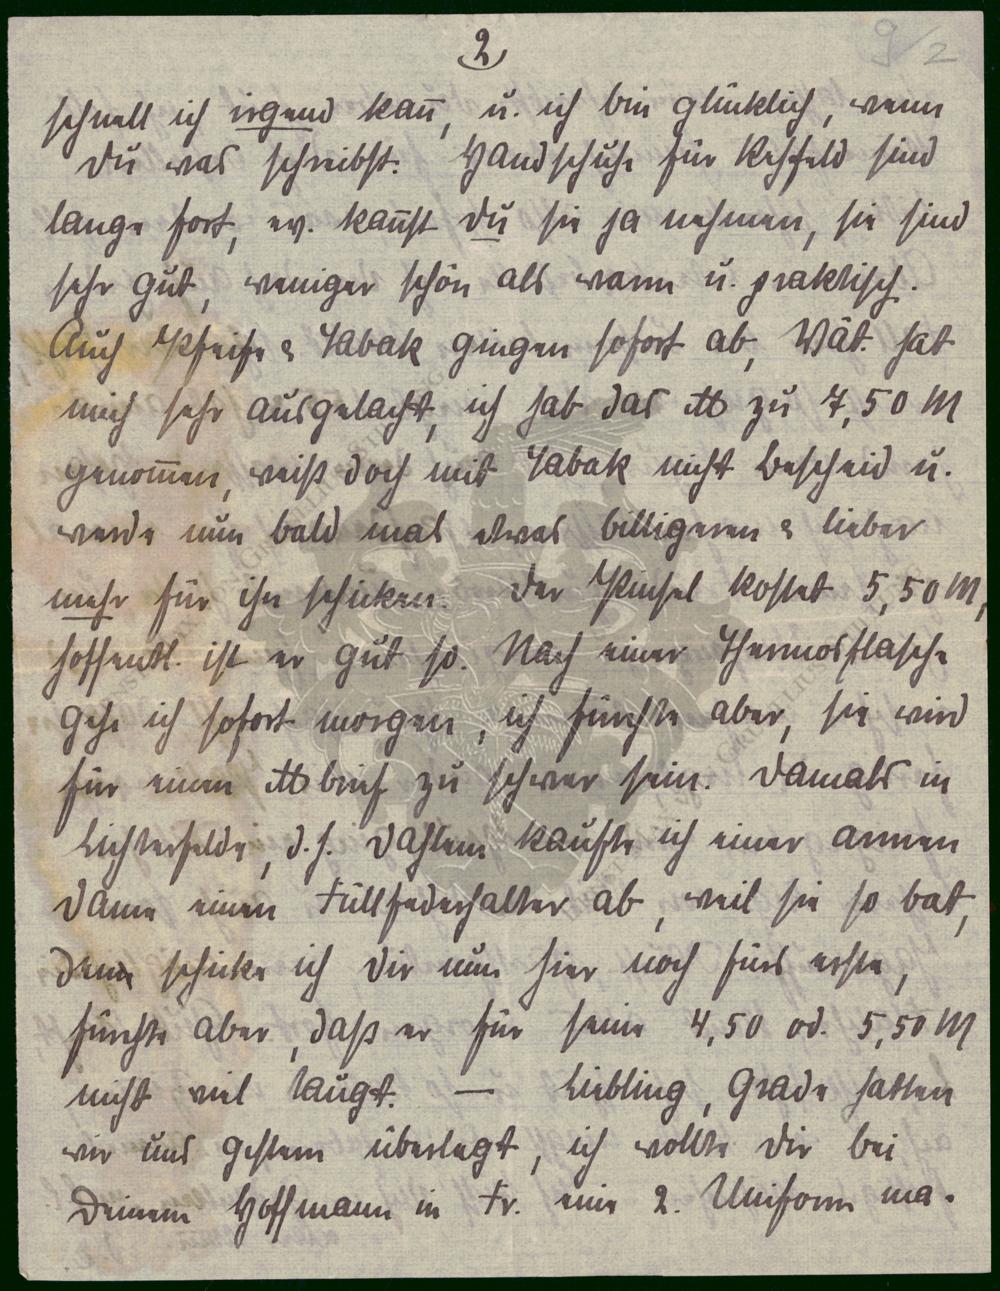 2
9/2
schnell ich irgend kan̄, u. ich bin glücklich, wenn
Du was schreibst. Handschuhe für Rehfeld sind
lange fort, ev. kan̄st Du sie ja nehmen, sie sind
sehr gut, weniger schön als warm u. praktisch.
Auch Pfeife & Tabak gingen sofort ab, Vät. hat
mich sehr ausgelacht, ich hab das ℔ zu 7,50 M
genom̄en, weiß doch mit Tabak nicht Bescheid u.
werde nun bald mal etwas billigeren & lieber
mehr für ihn schicken. Der Pinsel kostet 5,50 M,
hoffentl. ist er gut so. Nach einer Thermosflasche
gehe ich sofort morgen, ich fürchte aber, sie wird
für einen ℔brief zu schwer sein. Damals in
Lichterfelde, d. h. Dahlem kaufte ich einer armen
Dame einen Füllfederhalter ab, weil sie so bat,
denn schicke ich Dir nun hier noch fürs erste,
fürchte aber, daß er für seine 4,50 od. 5,50 M
nicht viel taugt. — Liebling, Grade hatten
wir uns gestern überlegt, ich wollte Dir bei
Deinem Hoffmann in Fr. eine 2. Uniform ma-